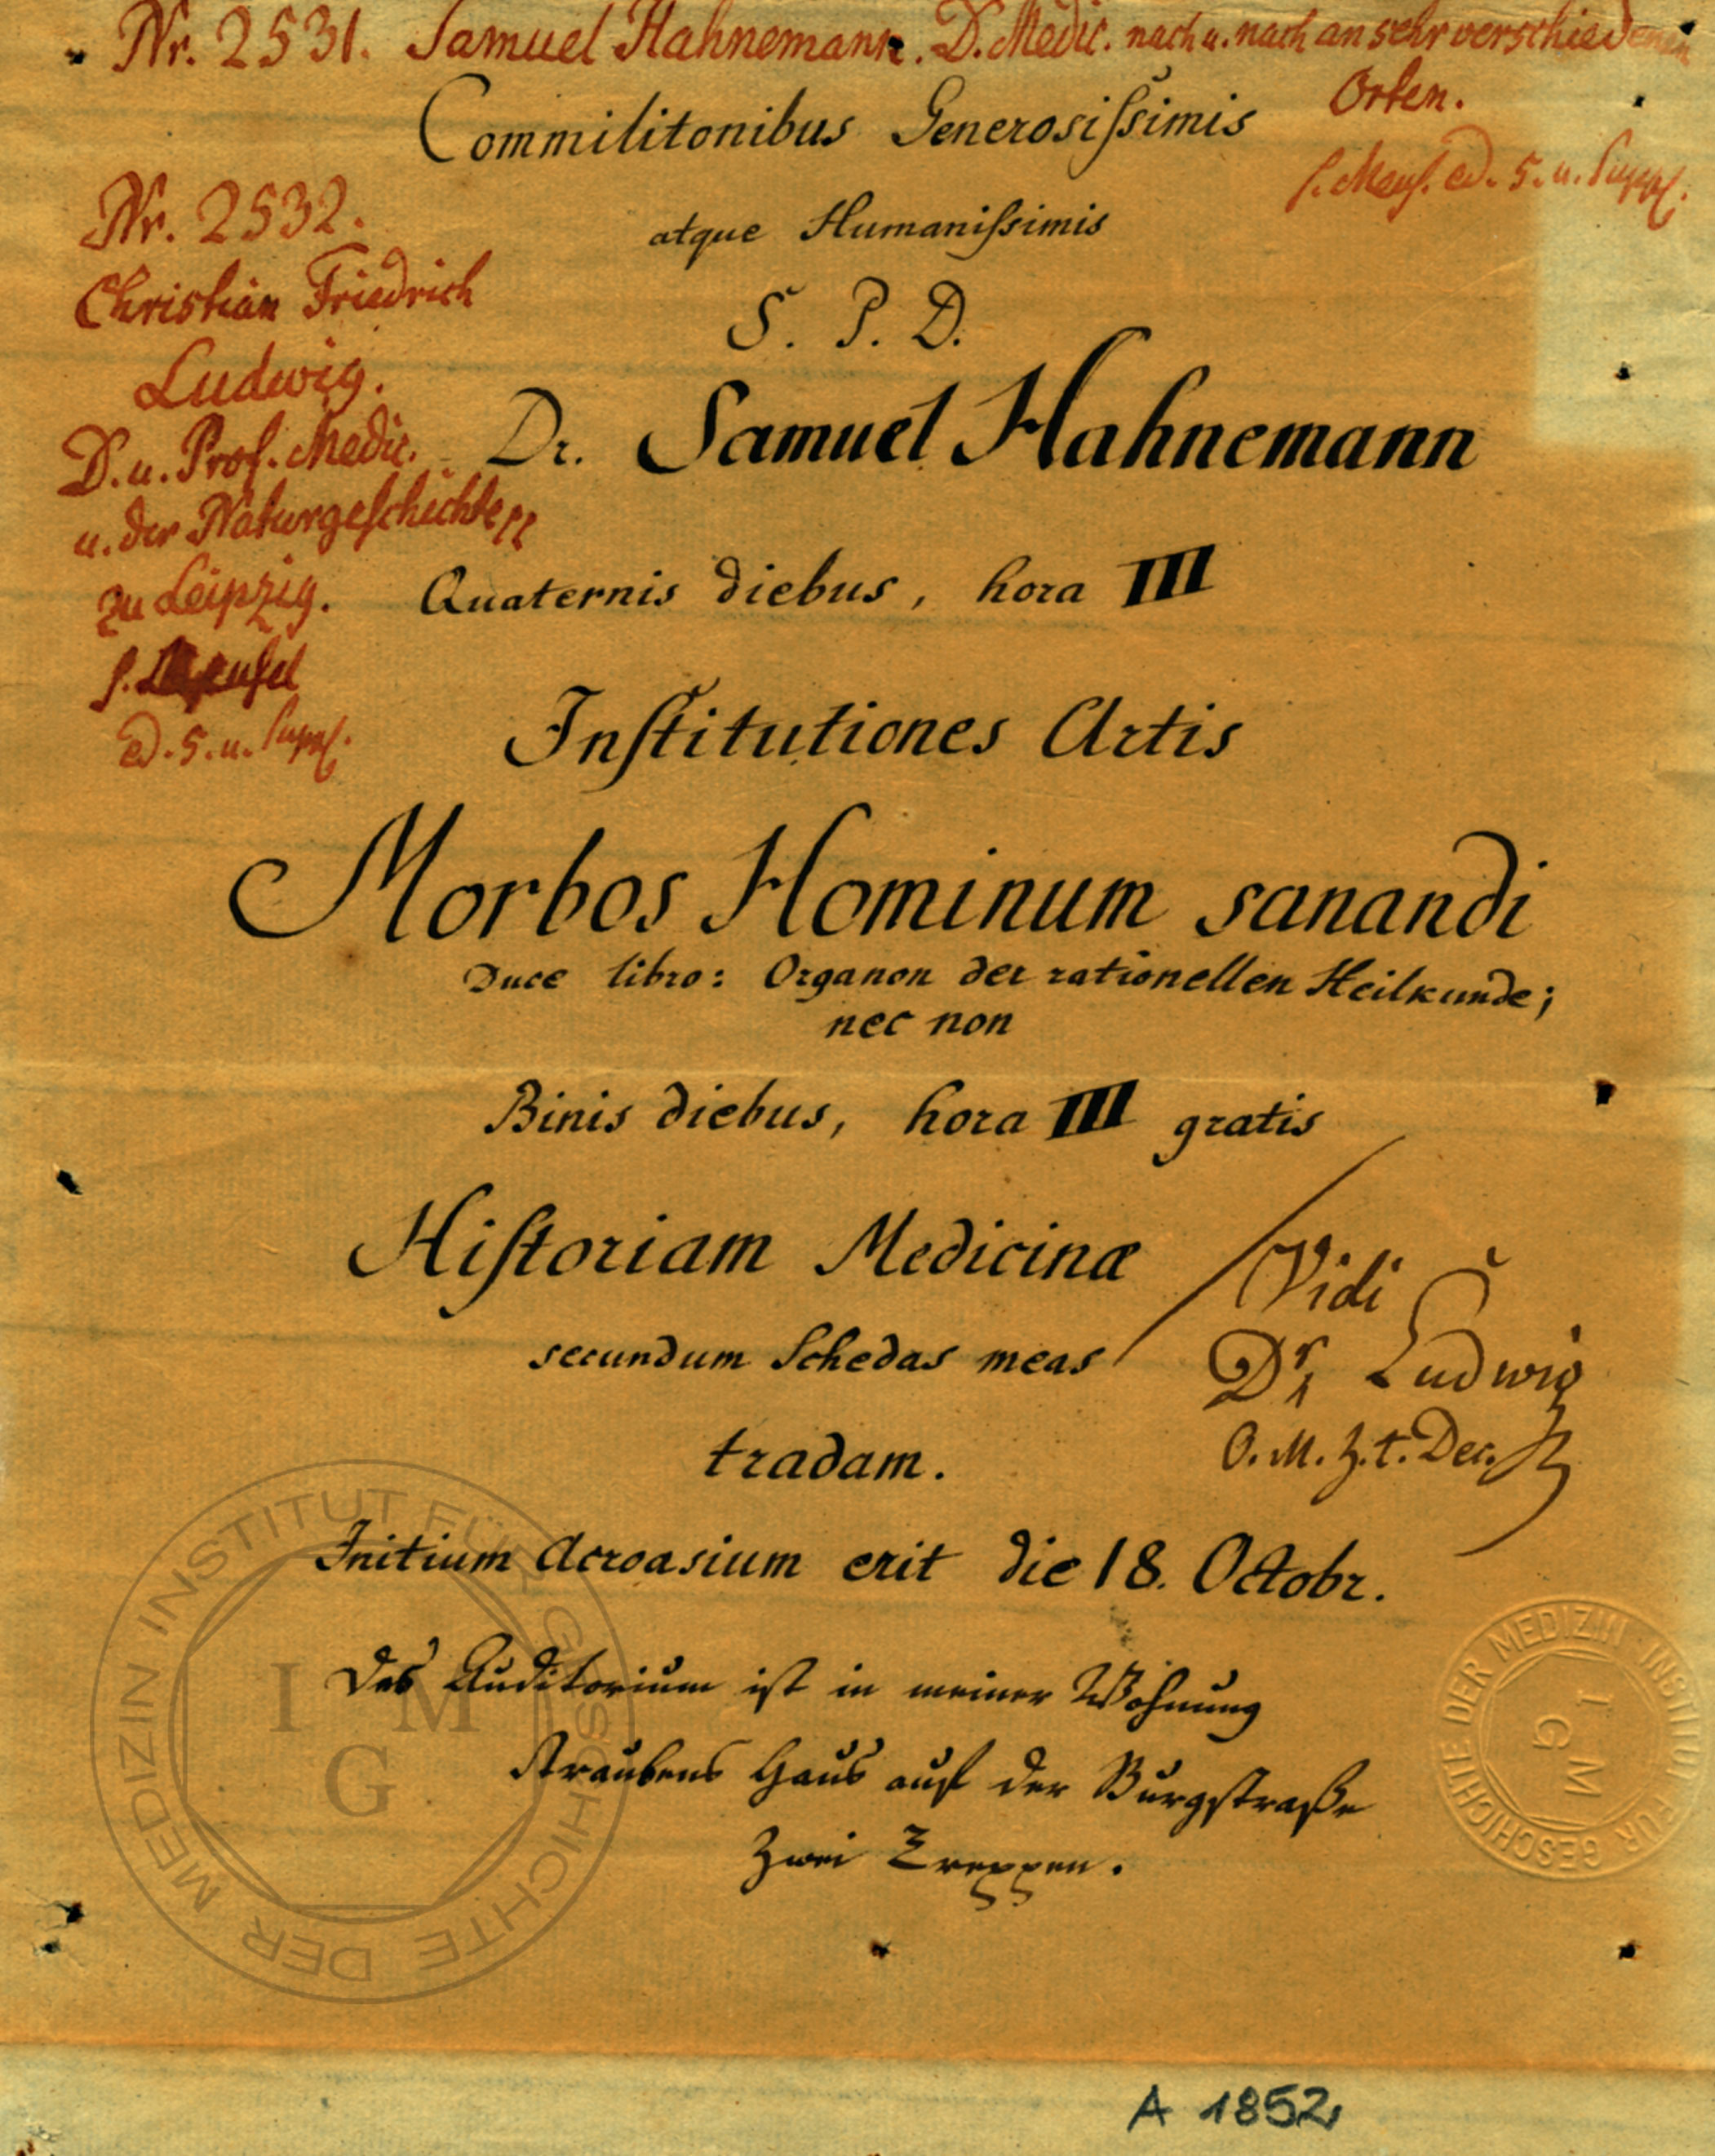 Nr. 2531. Samuel Hahnemann. D. Medic. nach u. nach an sehr verschiedenen
Orten.
s. Meus. ed. 5. u. Suppl.
Commilitonibus Generosiſsimis
atque Humaniſsimis
S. P. D.
Nr. 2532.
Christian Friedrich
Ludwig.
D. u. Prof. Medic.
u. der Naturgeſchichte
zu Leipzig.
s. Meuſel
ed. 5. u. Suppl.
Dr. Samuel Hahnemann
Quaternis diebus, hora III
Inſtitutiones Artis
Morbos Hominum sanandi
Duce libro: Organon der rationellen Heilkunde;
nec non
Binis diebus, hora III gratis
Hiſtoriam Medicinæ
secundum Schedas meas
tradam.
Vidi
Dr Ludwig
O. M. z. t. Dec.
Initium Acroasium erit die 18. Octobr.
Das Auditorium ist in meiner Wohnung
Straubens Haus auf der Burgstraße
zwei Treppen.
MEDIZIN INSTITUT FÜR GESCHICHTE DER
I M
G
INSTITUT FÜR GESCHICHTE DER MEDIZIN
I M
G
A 1852